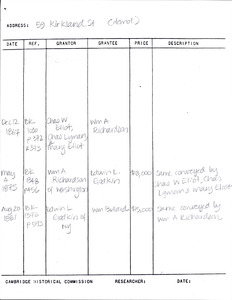 ADDRESS: 59 Kirkland St
DATE REF. GRANTOR GRANTEE PRICE DESCRIPTION
Dec 12 BK Chas W Wm A
1867 Eliot, Richardson
p 372 Chas Lyman
Mary Eliot
May BK Wm A Edwin L $8,000 Same conveyed by
4 848 Richardson Godkin Chas W Eliot, Chas
1875 p456 of Washington Lyman & Mary Eliot
Aug 20 BK Edwin L $5,000 Same conveyed by
1881 1575 Godkin of Wm A Richardson
p 573 NY
CAMBRIDGE HISTORICAL COMMISSION RESEARCHER: DATE: